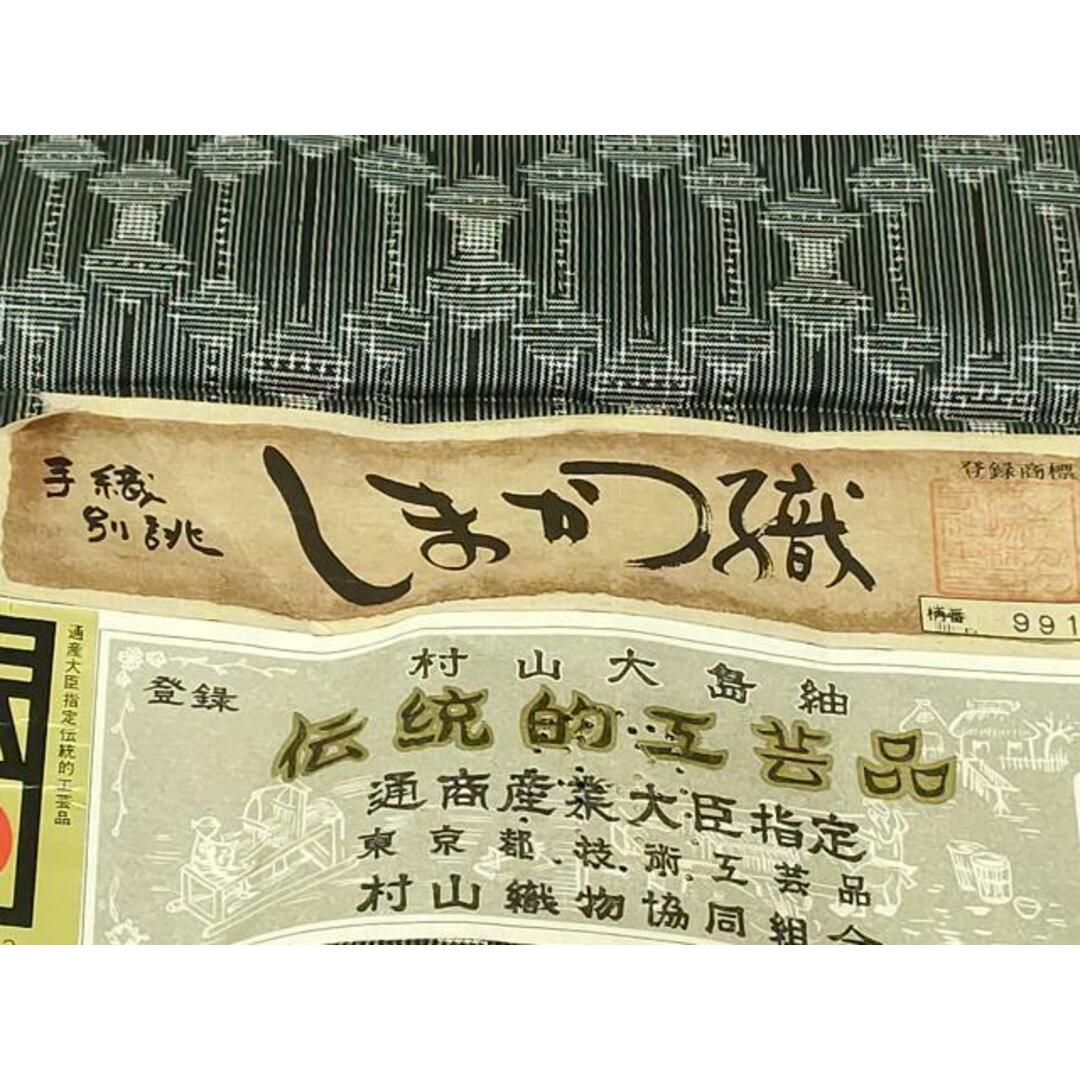 手織
別誂
しまかつ織
登録商標
柄番 991
通産大臣指定伝統的工芸品
村山大島紬
登録
伝統的工芸品
通商産業大臣指定
東京都技術工芸品
村山織物協同組合